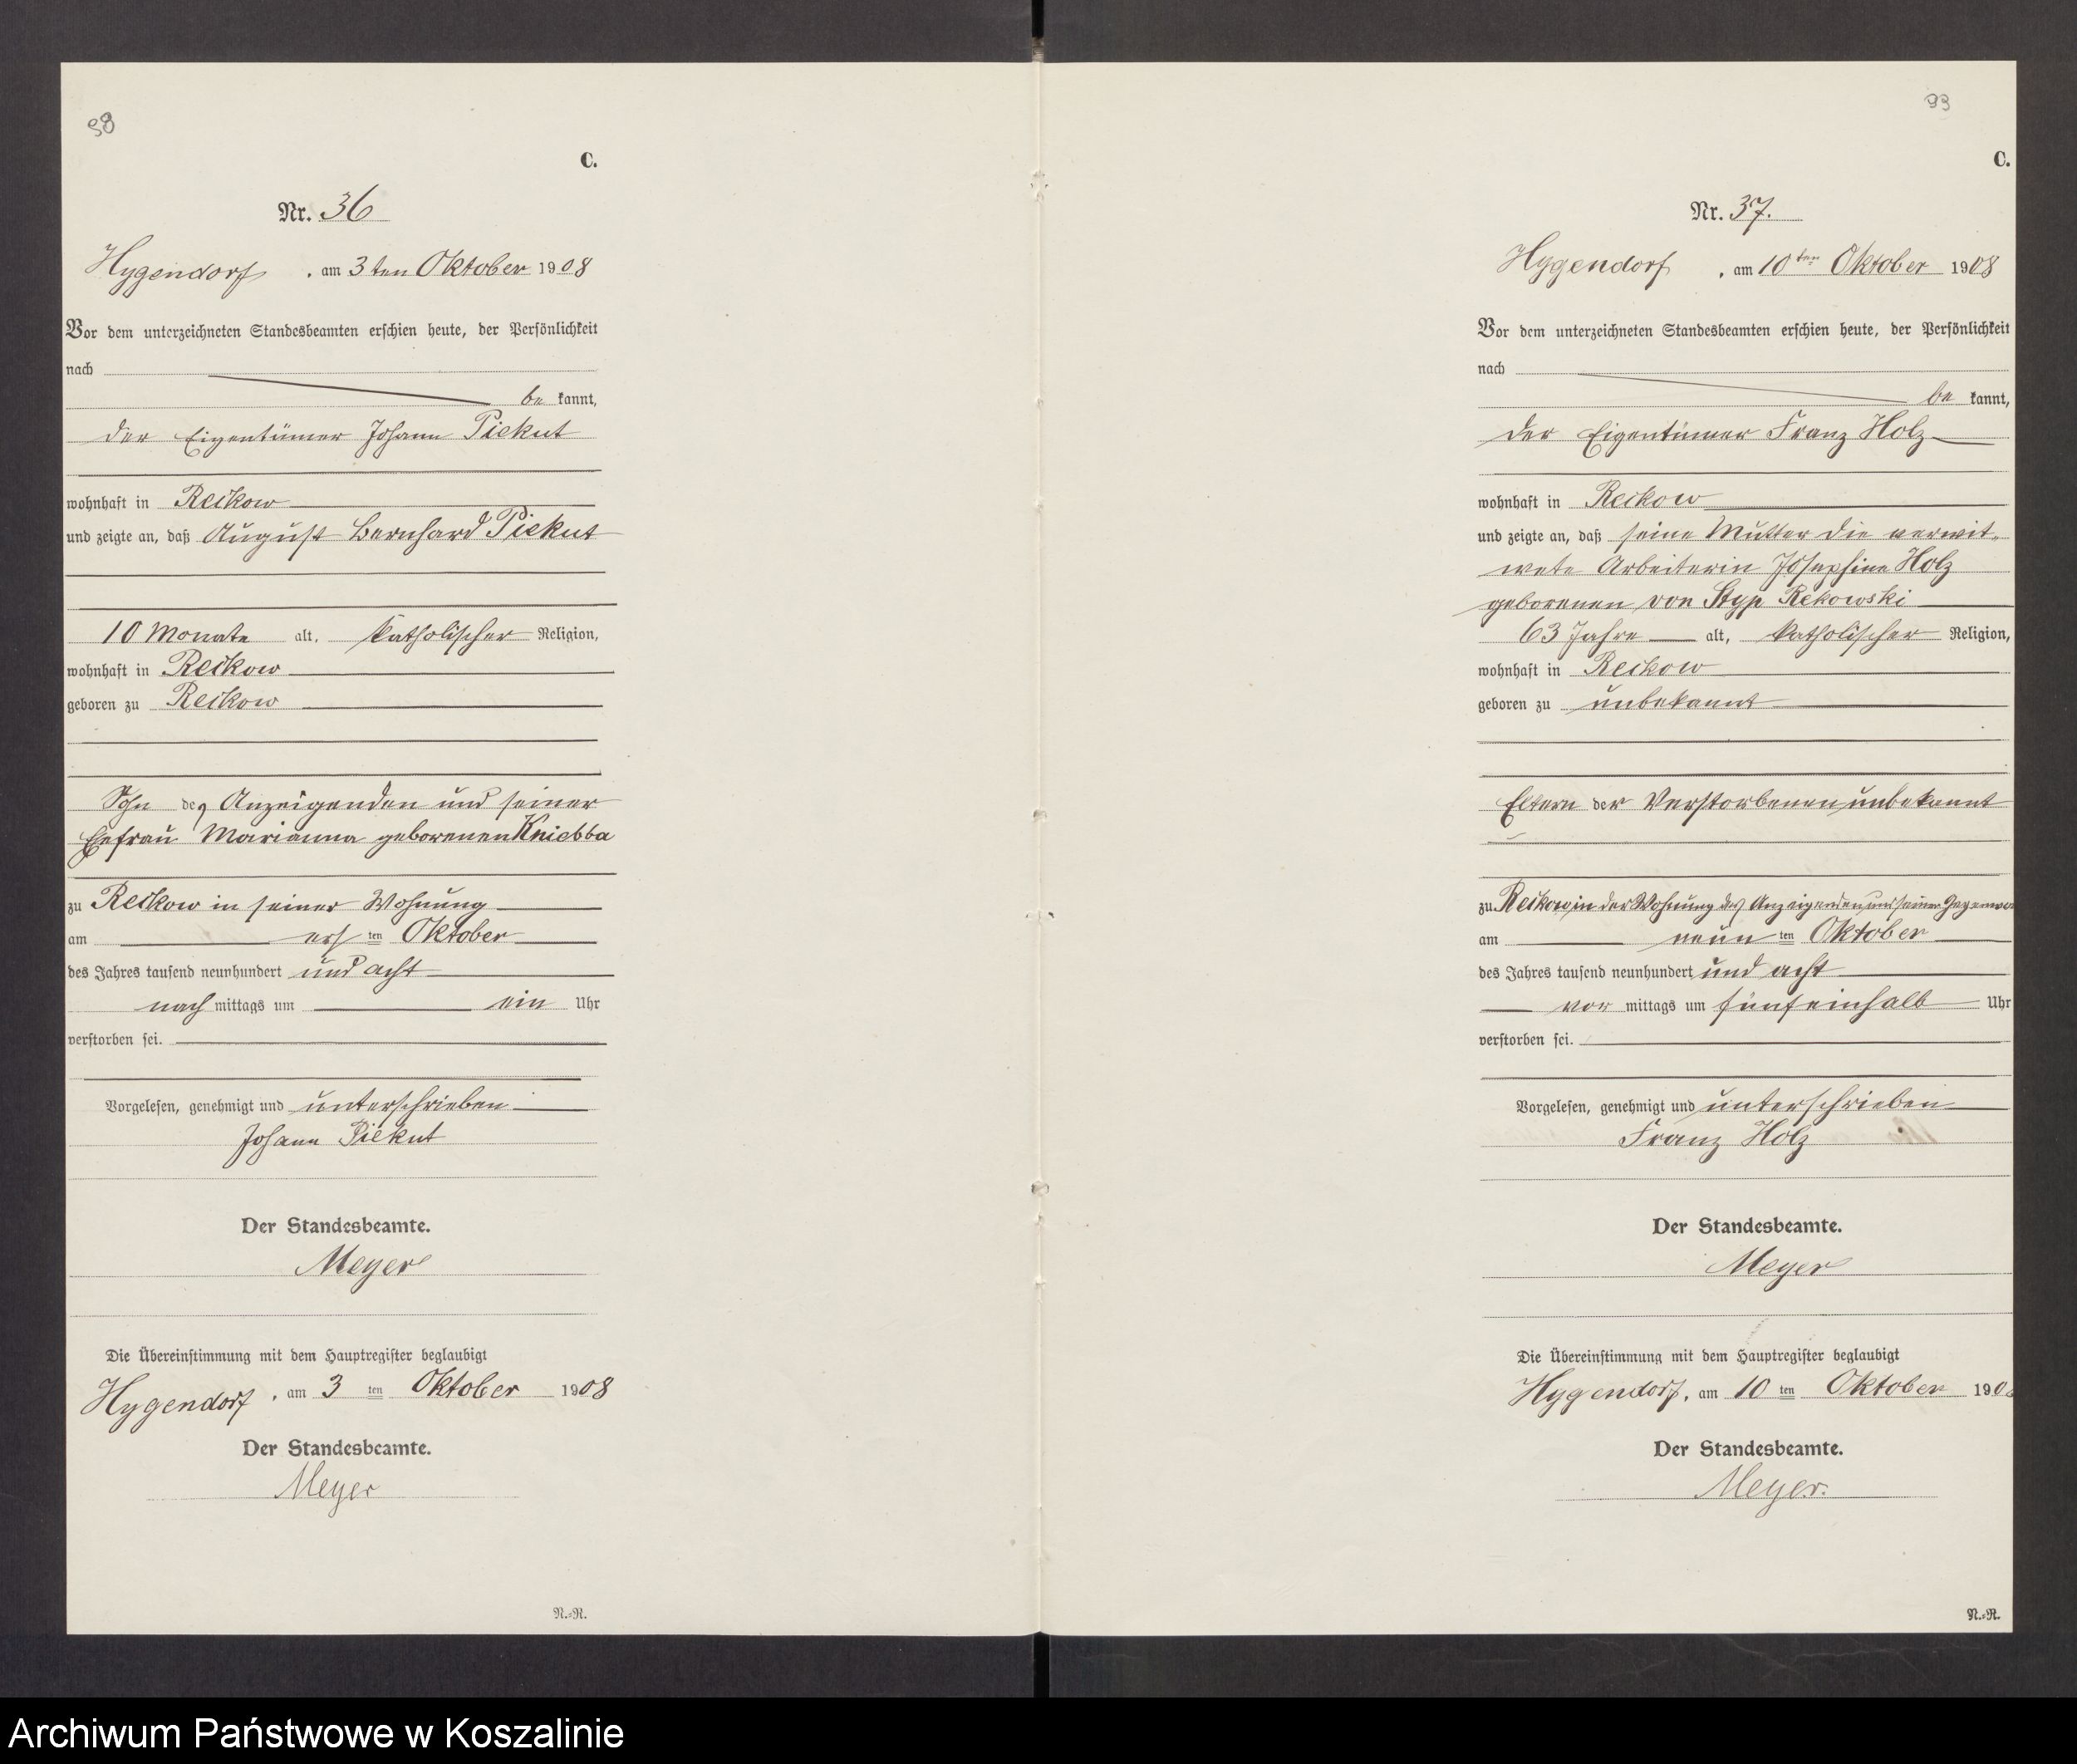 98
C.
Nr. 36
Hygendorf, am 3ten Oktober 1908
Vor dem unterzeichneten Standesbeamten erschien heute, der Persönlichkeit
nach
be kannt,
der Eigentümer Johann Piekut
wohnhaft in Reckow
und zeigte an, daß August Bernhard Piekut
10 Monate alt, katholischer Religion,
wohnhaft in Reckow
geboren zu Reckow
Sohn des Anzeigenden und seiner
Ehefrau Marianna geborenen Kniebba
zu Reckow in seiner Wohnung
am ersten Oktober
des Jahres tausend neunhundert und acht
nach mittags um ein Uhr
verstorben sei.
Vorgelesen, genehmigt und unterschrieben
Johann Piekut
Der Standesbeamte.
Meyer
Die Übereinstimmung mit dem Hauptregister beglaubigt
Hygendorf, am 3 ten Oktober 1908
Der Standesbeamte.
Meyer
N.=R.
93
C.
Nr. 37.
Hygendorf, am 10ten Oktober 1908
Vor dem unterzeichneten Standesbeamten erschien heute, der Persönlichkeit
nach
be kannt,
der Eigentümer Franz Holz
wohnhaft in Reckow
und zeigte an, daß seine Mutter die verwit=
wete Arbeiterin Josephine Holz
geborenen von Styp Rekowski
63 Jahre alt, katholischer Religion,
wohnhaft in Reckow
geboren zu unbekannt
Eltern der Verstorbenen unbekannt
zu Reckow in der Wohnung des Anzeigenden und seiner
am neun ten Oktober
des Jahres tausend neunhundert und acht
vor mittags um fünfeinhalb Uhr
verstorben sei.
Vorgelesen, genehmigt und unterschrieben
Franz Holz
Der Standesbeamte.
Meyer
Die Übereinstimmung mit dem Hauptregister beglaubigt
Hygendorf, am 10 ten Oktober 190
Der Standesbeamte.
Meyer.
N.=R.
Archiwum Państwowe w Koszalinie